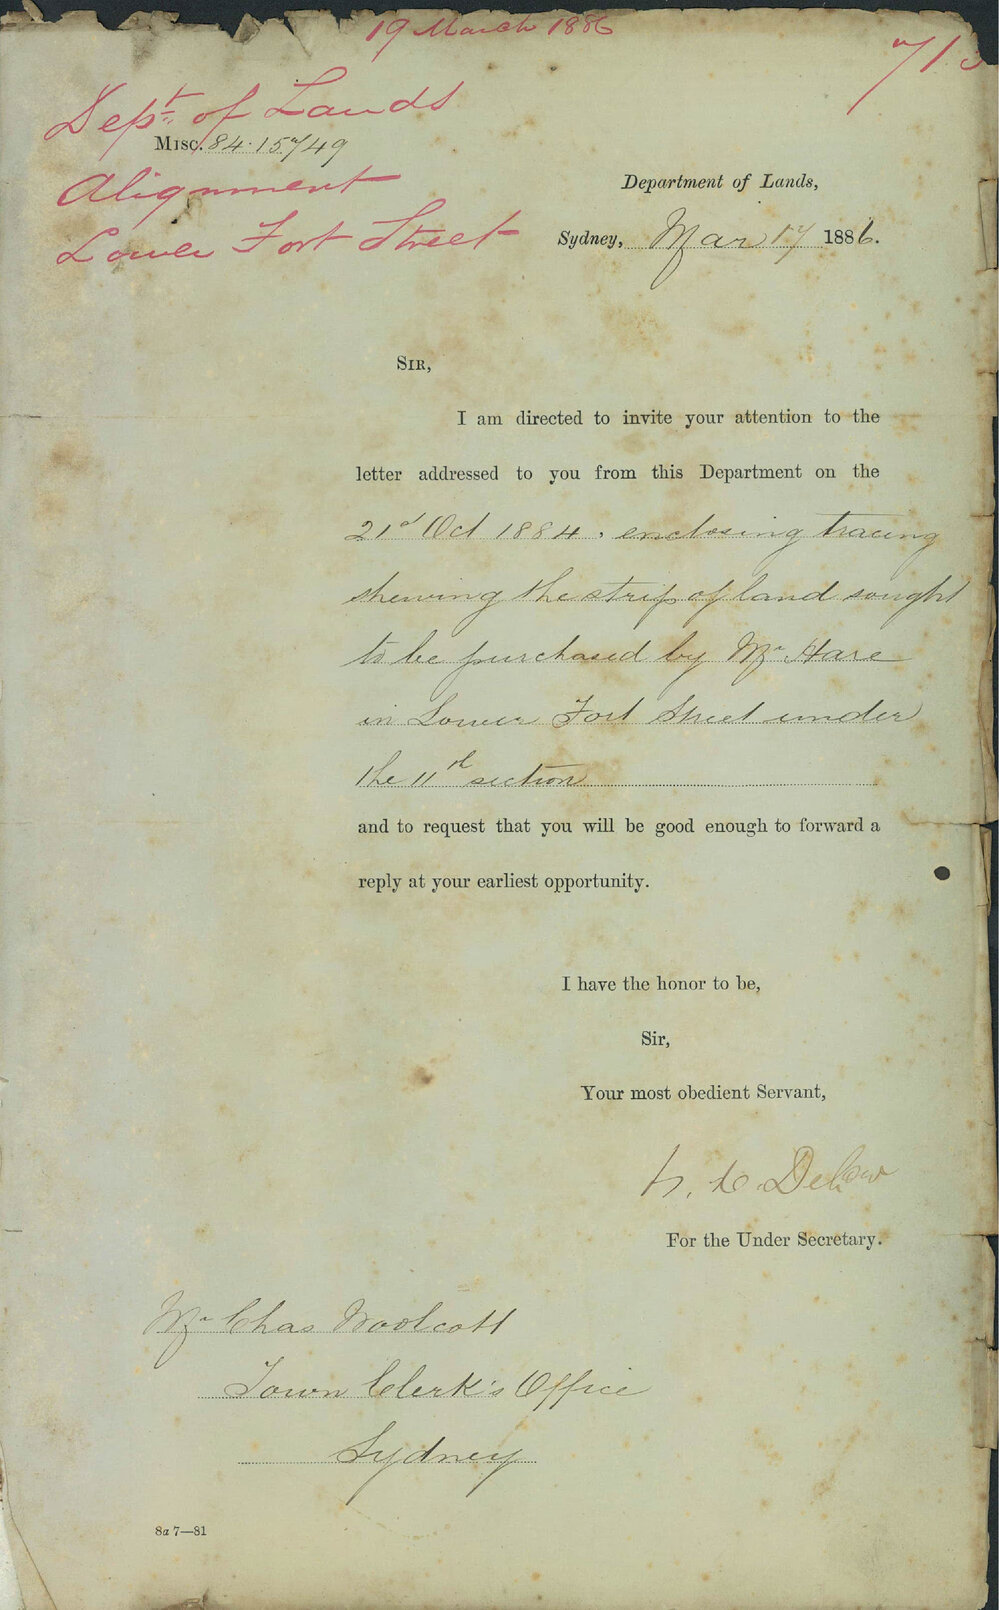 19 March 1886
713
Dept. of Lands
Misc. 84.15749
Alignment
Department of Lands,
Lower Fort Street
Sydney, Mar 17 1886.
Sir,
I am directed to invite your attention to the
letter addressed to you from this Department on the
21st Oct 1884. enclosing tracing
shewing the strip of land sought
to be purchased by Mr Hare
in Lower Fort Street under
the 11th section
and to request that you will be good enough to forward a
reply at your earliest opportunity.
I have the honor to be,
Sir,
Your most obedient Servant,
For the Under Secretary.
Mr Chas Woolcott
Town Clerk's Office
Sydney
8a 7—81